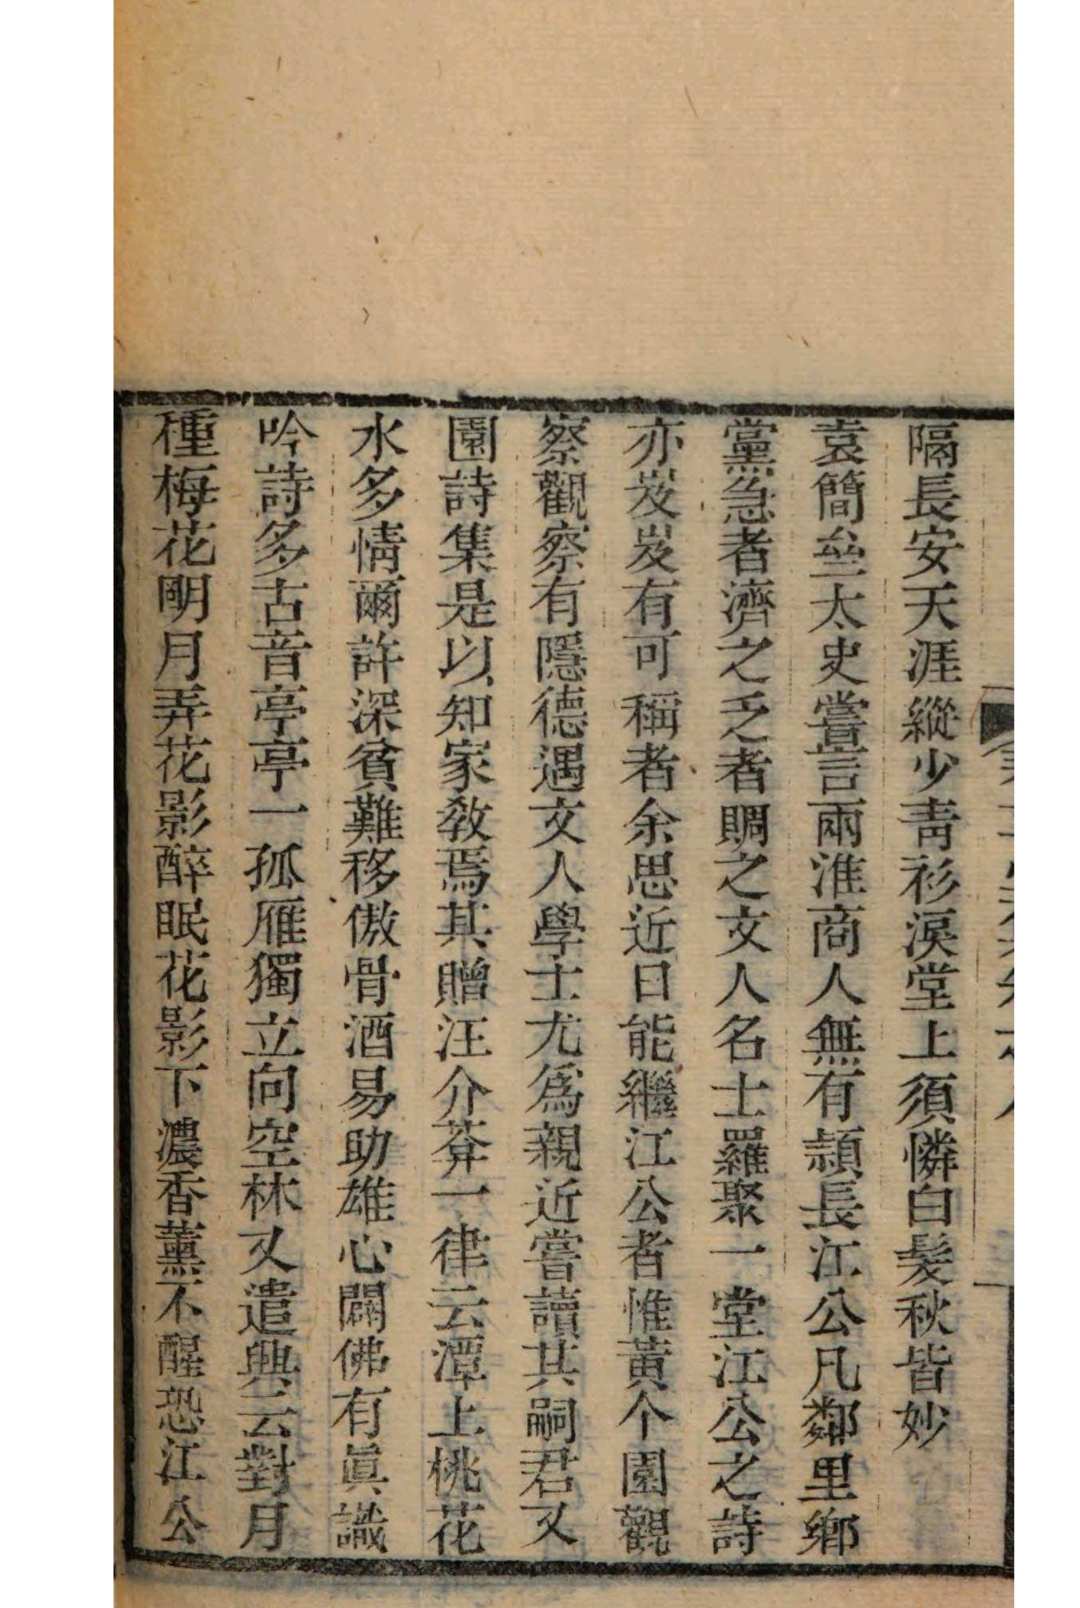 隔長安天涯縱少靑衫淚堂上須憐白髮秋皆妙
袁簡垒太史嘗言兩淮商人無有頴長江公凡鄰里鄕
黨急者濟之乏者賙之文人名士羅聚一堂江公之詩
亦岌岌有可稱者余思近日能繼江公者惟黃个園觀
察觀察有隱德遇文人學士尤爲親近嘗讀其嗣君又
園詩集是以知家敎焉其贈汪介莽一律云潭上桃花
水多情爾許深貧難移傲骨酒易助雄心闢佛有眞識
吟詩多古音亭亭一孤雁獨立向空林又遣興云對月
種梅花明月弄花影醉眠花影下濃香薰不醒恐江公